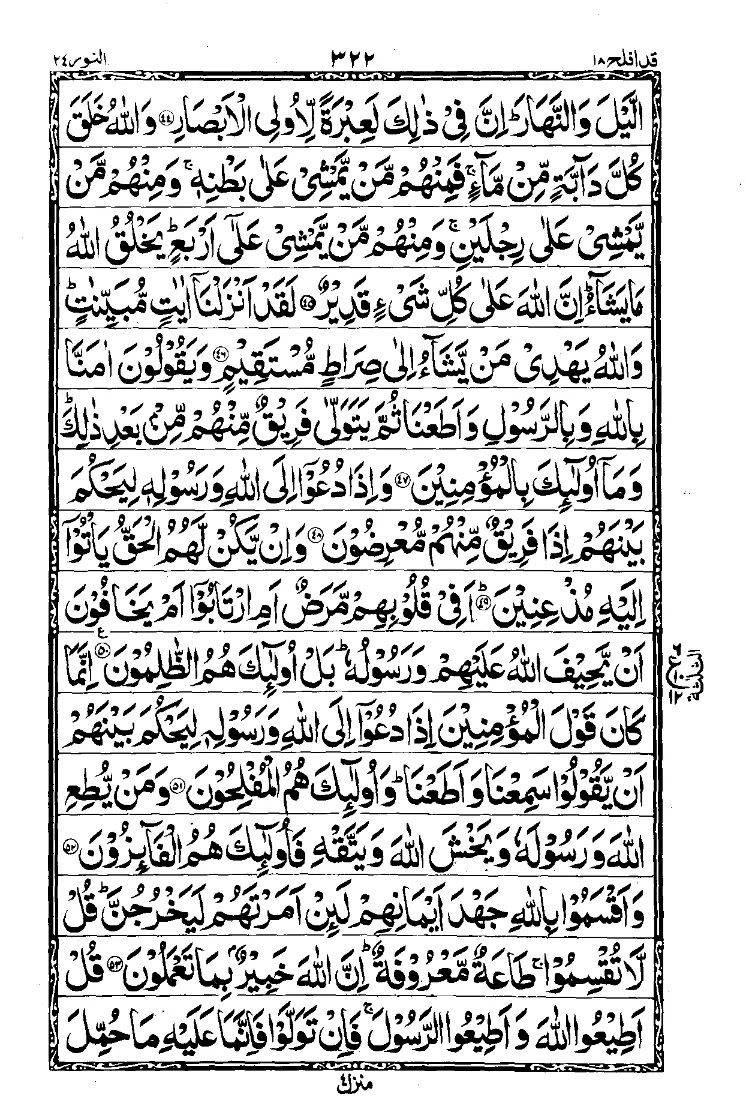 قد افلح ١٨ ٣٢٢ النور ٢٤
الَّيْلَ وَالنَّهَارَ ؕ اِنَّ فِىْ ذٰلِكَ لَعِبْرَةً لِّاُولِى الْاَبْصَارِ ﴿۴۴﴾ وَاللّٰهُ خَلَقَ
كُلَّ دَآبَّةٍ مِّنْ مَّآءٍ ۚ فَمِنْهُمْ مَّنْ يَّمْشِىْ عَلٰى بَطْنِهٖ ۚ وَمِنْهُمْ مَّنْ
يَّمْشِىْ عَلٰى رِجْلَيْنِ ۚ وَمِنْهُمْ مَّنْ يَّمْشِىْ عَلٰٓى اَرْبَعٍ ؕ يَخْلُقُ اللّٰهُ
مَا يَشَآءُ ؕ اِنَّ اللّٰهَ عَلٰى كُلِّ شَىْءٍ قَدِيْرٌ ﴿۴۵﴾ لَقَدْ اَنْزَلْنَاۤ اٰيٰتٍ مُّبَيِّنٰتٍ ؕ
وَاللّٰهُ يَهْدِىْ مَنْ يَّشَآءُ اِلٰى صِرَاطٍ مُّسْتَقِيْمٍ ﴿۴۶﴾ وَيَقُوْلُوْنَ اٰمَنَّا
بِاللّٰهِ وَبِالرَّسُوْلِ وَاَطَعْنَا ثُمَّ يَتَوَلّٰى فَرِيْقٌ مِّنْهُمْ مِّنْۢ بَعْدِ ذٰلِكَ ؕ
وَمَاۤ اُولٰٓئِكَ بِالْمُؤْمِنِيْنَ ﴿۴۷﴾ وَاِذَا دُعُوْۤا اِلَى اللّٰهِ وَرَسُوْلِهٖ لِيَحْكُمَ
بَيْنَهُمْ اِذَا فَرِيْقٌ مِّنْهُمْ مُّعْرِضُوْنَ ﴿۴۸﴾ وَاِنْ يَّكُنْ لَّهُمُ الْحَقُّ يَاْتُوْۤا
اِلَيْهِ مُذْعِنِيْنَ ؕ ﴿۴۹﴾ اَفِىْ قُلُوْبِهِمْ مَّرَضٌ اَمِ ارْتَابُوْۤا اَمْ يَخَافُوْنَ
اَنْ يَّحِيْفَ اللّٰهُ عَلَيْهِمْ وَرَسُوْلُهٗ ؕ بَلْ اُولٰٓئِكَ هُمُ الظّٰلِمُوْنَ ﴿۵۰﴾ ع اِنَّمَا
كَانَ قَوْلَ الْمُؤْمِنِيْنَ اِذَا دُعُوْۤا اِلَى اللّٰهِ وَرَسُوْلِهٖ لِيَحْكُمَ بَيْنَهُمْ
اَنْ يَّقُوْلُوْا سَمِعْنَا وَاَطَعْنَا ؕ وَاُولٰٓئِكَ هُمُ الْمُفْلِحُوْنَ ﴿۵۱﴾ وَمَنْ يُّطِعِ
اللّٰهَ وَرَسُوْلَهٗ وَيَخْشَ اللّٰهَ وَيَتَّقْهِ فَاُولٰٓئِكَ هُمُ الْفَآئِزُوْنَ ﴿۵۲﴾
وَاَقْسَمُوْا بِاللّٰهِ جَهْدَ اَيْمَانِهِمْ لَئِنْ اَمَرْتَهُمْ لَيَخْرُجُنَّ ؕ قُلْ
لَّا تُقْسِمُوْا ۚ طَاعَةٌ مَّعْرُوْفَةٌ ؕ اِنَّ اللّٰهَ خَبِيْرٌۢ بِمَا تَعْمَلُوْنَ ﴿۵۳﴾ قُلْ
اَطِيْعُوا اللّٰهَ وَاَطِيْعُوا الرَّسُوْلَ ۚ فَاِنْ تَوَلَّوْا فَاِنَّمَا عَلَيْهِ مَا حُمِّلَ
منزل ۴